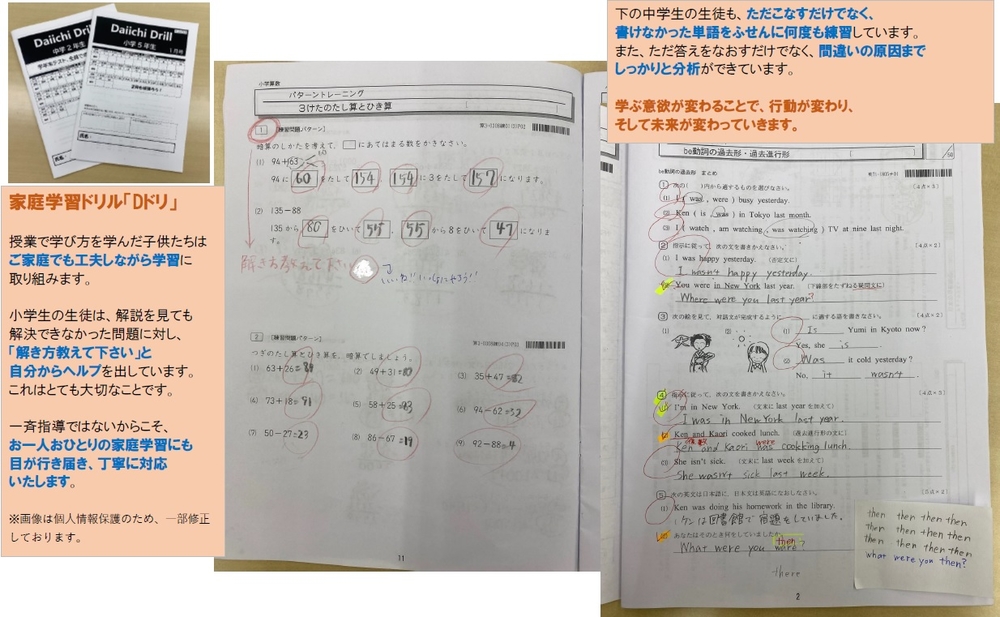 Daiichi Drill
中学2年生
Daiichi Drill
小学5年生
1月号
氏名:
氏名:
家庭学習ドリル「Dドリ」
授業で学び方を学んだ子供たちは
ご家庭でも工夫しながら学習に
取り組みます。
小学生の生徒は、解説を見ても
解決できなかった問題に対し、
「解き方教えて下さい」と
自分からヘルプを出しています。
これはとても大切なことです。
一斉指導ではないからこそ、
お一人おひとりの家庭学習にも
目が行き届き、丁寧に対応
いたします。
※画像は個人情報保護のため、一部修正
しております。
小学算数
パターントレーニング
3けたのたし算とひき算
1 【練習問題パターン】
暗算のしかたを考えて、□にあてはまる数をかきなさい。
(1) 94+63
94に 60 をたして 154 154 に3をたして 157 になります。
(2) 135-88
135から 80 をひいて 55 55 から8をひいて 47 になりま
す。
解き方教えて下さい
2 【練習問題パターン】
つぎのたし算とひき算を、暗算でしましょう。
(1) 63+26=89
(2) 49+31=80
(3) 35+47=82
(4) 73+18=91
(5) 58+25=83
(6) 94-62=32
(7) 50-27=23
(8) 86-67=19
(9) 92-88=4
11
下の中学生の生徒も、ただこなすだけでなく、
書けなかった単語をふせんに何度も練習しています。
また、ただ答えをなおすだけでなく、間違いの原因まで
しっかりと分析ができています。
学ぶ意欲が変わることで、行動が変わり、
そして未来が変わっていきます。
be動詞の過去形・過去進行形
be動詞の過去形 まとめ
1 次の( )内から適するものを選びなさい。 (4点×3)
(1) I ( was , were ) busy yesterday.
(2) Ken ( is was ) in Tokyo last month.
(3) I ( watch , am watching , was watching ) TV at nine last night.
2 指示に従って、次の文を書きかえなさい。 (4点×2)
(1) I was happy yesterday. (否定文に)
I wasn't happy yesterday.
(2) You were in New York last year. (下線部をたずねる疑問文に)
Where were you last year?
3 次の絵を見て、対話文が完成するように に適する語を書きなさい。 (4点×2)
(1)
(2)
(1) Is Yumi in Kyoto now?
Yes, she is .
(2) Was it cold yesterday?
No, it wasn't.
4 指示に従って、次の文を書きかえなさい。 (4点×3)
(1) I'm in New York. (文末に last year を加えて)
I was in New York last year.
(2) Ken and Kaori cooked lunch. (過去進行形の文に)
were
Ken and Kaori was cookking lunch.
(3) She isn't sick. (文末に last week を加えて)
She wasn't sick last week.
5 次の英文は日本語に、日本文は英語になおしなさい。 (5点×2)
(1) Ken was doing his homework in the library.
ケンは図書館で宿題をしていました。
(2) あなたはそのとき何をしていましたか。
then?
What were you
there
2
then then then then
then then then then
then then then then
what were you then?